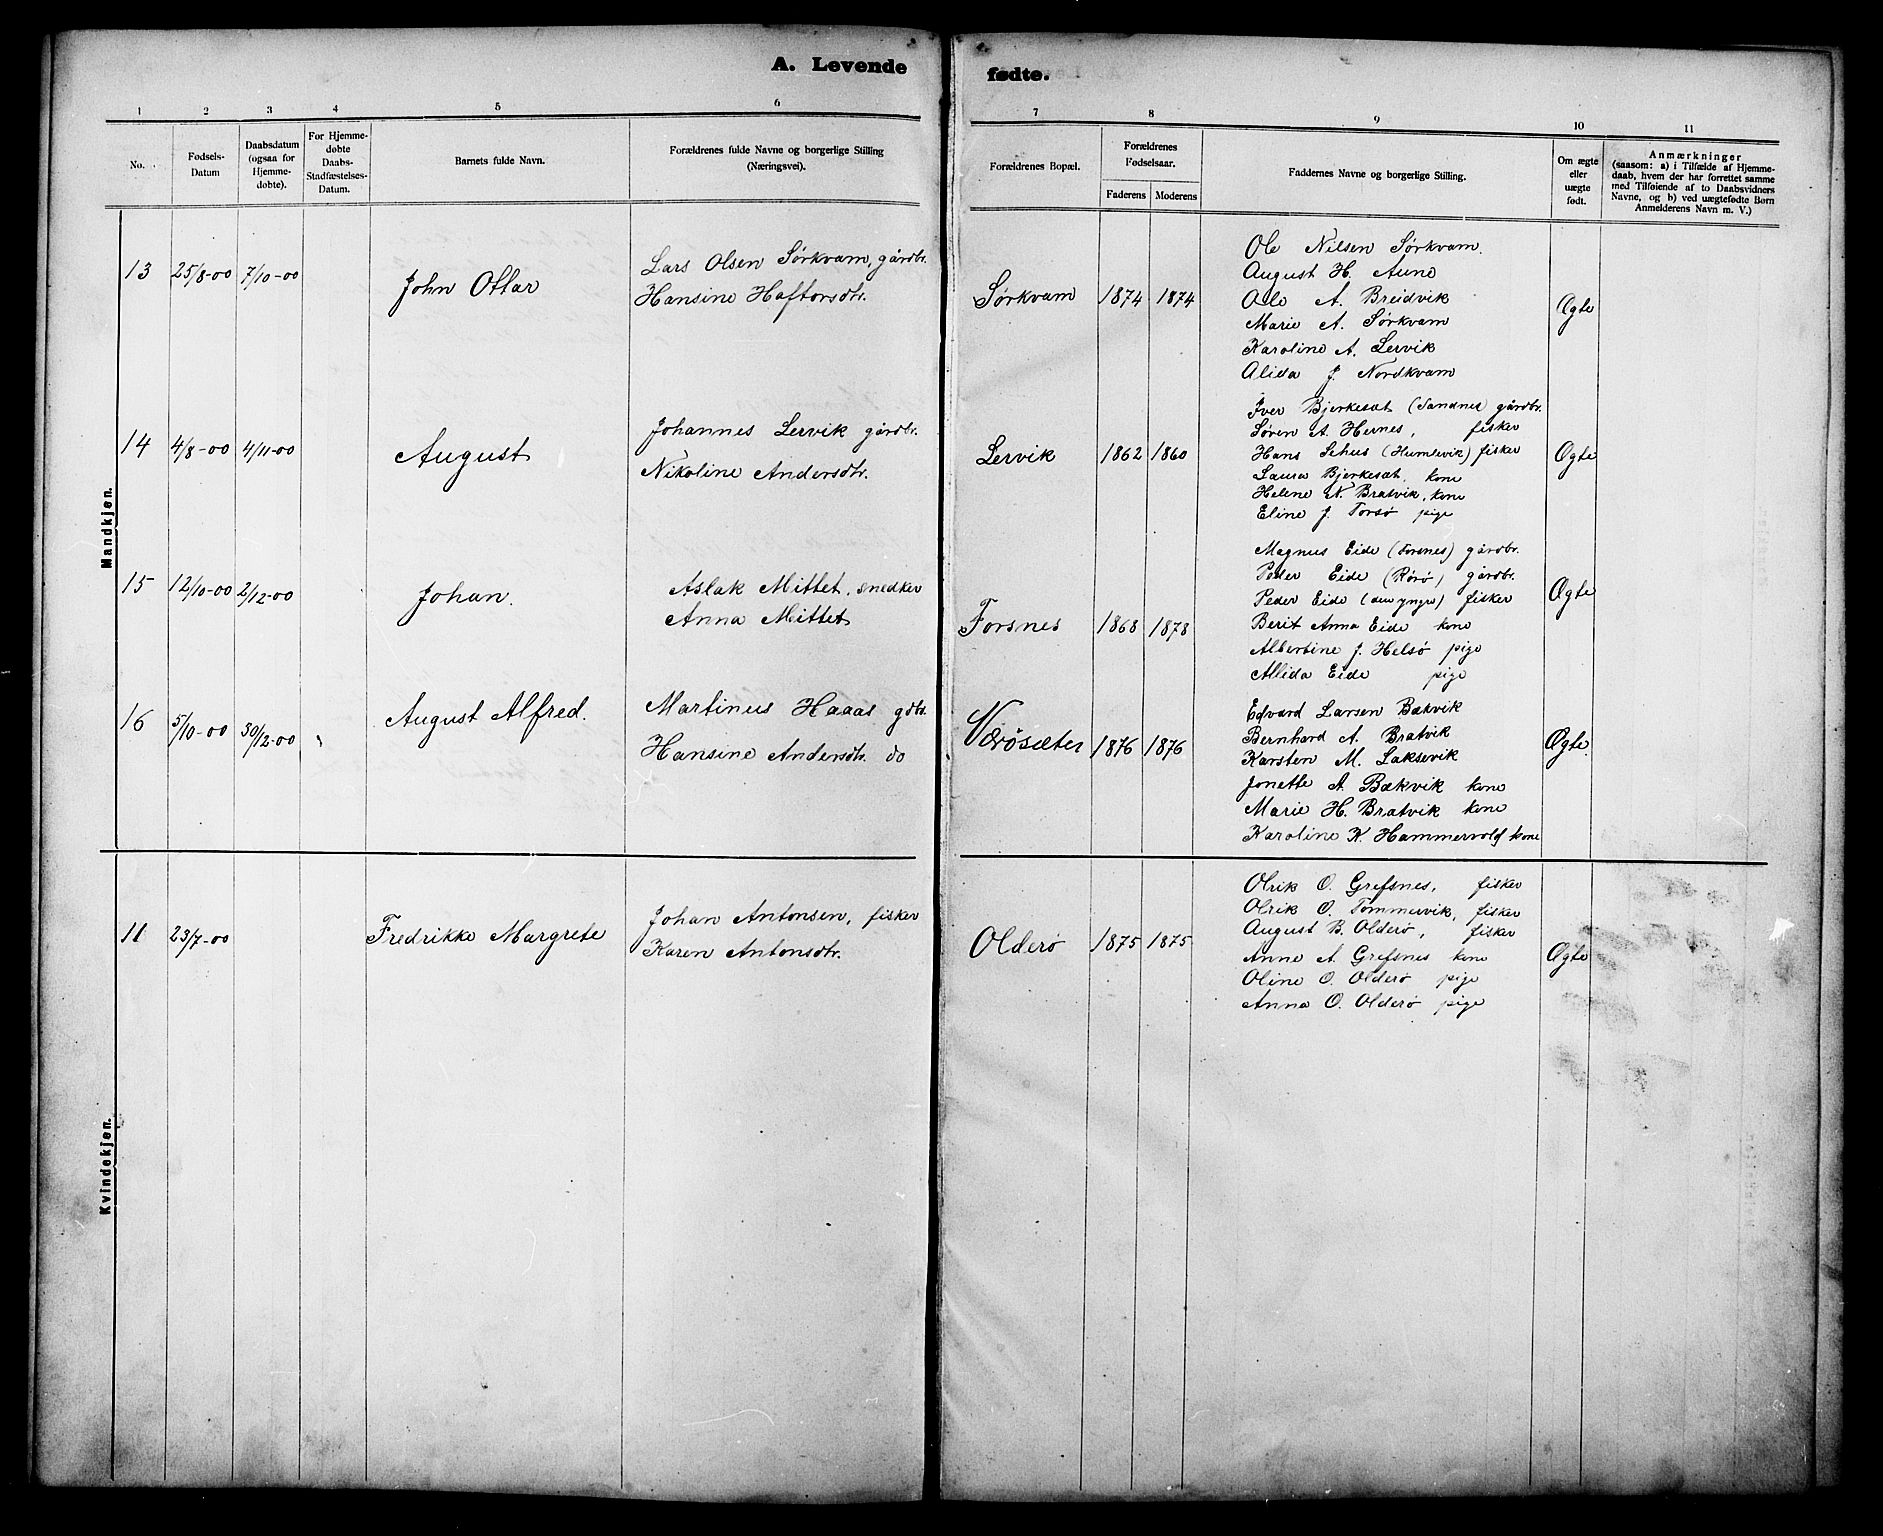 A. Levende fødte.
1 2 3 4 5 6 7 8 9 10 11
No.
Fødsels-
Datum
Daabsdatum
(ogsaa for
Hjemme-
døbte).
For Hjemme-
døbte
Daabs-
Stadfæstelses-
Datum.
Barnets fulde Navn.
Forældrenes fulde Navne og borgerlige Stilling
(Næringsvei).
Forældrenes Bopæl.
Forældrenes
Fødselsaar.
Faderens Moderens
Faddernes Navne og borgerlige Stilling.
Om ægte
eller
uægte
født.
Anmærkninger
(saasom: a) i Tilfælde af Hjemme-
daab, hvem der har forrettet samme
med Tilføiende af to Daabsvidners
Navne, og b) ved uægtefødte Børn
Anmelderens Navn m. V.)
Mandkjøn.
13 25/8-00 7/10-00
John Ottar
Lars Olsen Sørkvam, gårdbr.
Hansine Haftorsdtr.
Sørkvam 1874 1874
Ole Nilsen Sørkvam.
August H. Aune
Ole A. Breidvik
Marie A. Sørkvam
Karoline A. Lervik
Alida J. Nordkvam
Ægte
14 4/8-00 4/11-00
August
Johannes Lervik gårdbr.
Nikoline Andersdtr.
Lervik 1862 1860
Iver Bjerkesæt (Sandnes) gårdbr.
Søren A. Hernes, fisker
Hans Sehus (Humlevik) fisker
Laura Bjerkesæt, kone
Helene N. Bratvik, kone
Eline J. Torsø pige
Ægte
15 12/10-00 2/12-00
Johan.
Aslak Mittet, snedker
Anna Mittet
Forsnes 1868 1878
Magnus Eide (Forsnes) gårdbr.
Peder Eide (Rørø) gårdbr.
Peder Eide (den yngre) fisker
Berit Anna Eide kone
Albertine J. Helsø pige
Allida Eide pige
Ægte
16 5/10-00 30/12-00
August Alfred.
Martinus Haaas gdbr.
Hansine Andersdtr. do
Værøsæter 1876 1876
Edvard Larsen Bækvik
Bernhard A. Bratvik
Karsten M. Laksevik
Jonette A. Bækvik kone
Marie H. Bratvik kone
Karoline K. Hammervold kone
Ægte.
Kvindekjøn.
11 23/7-00
Fredrikke Margrete
Johan Antonsen, fisker
Karen Antonsdtr.
Olderø 1875 1875
Olrik O. Grefsnes, fisker
Olrik O. Tømmervik, fisker
August B. Olderø, fisker
Anne A. Grefsnes kone
Oline O. Olderø pige
Anna O. Olderø pige
Ægte